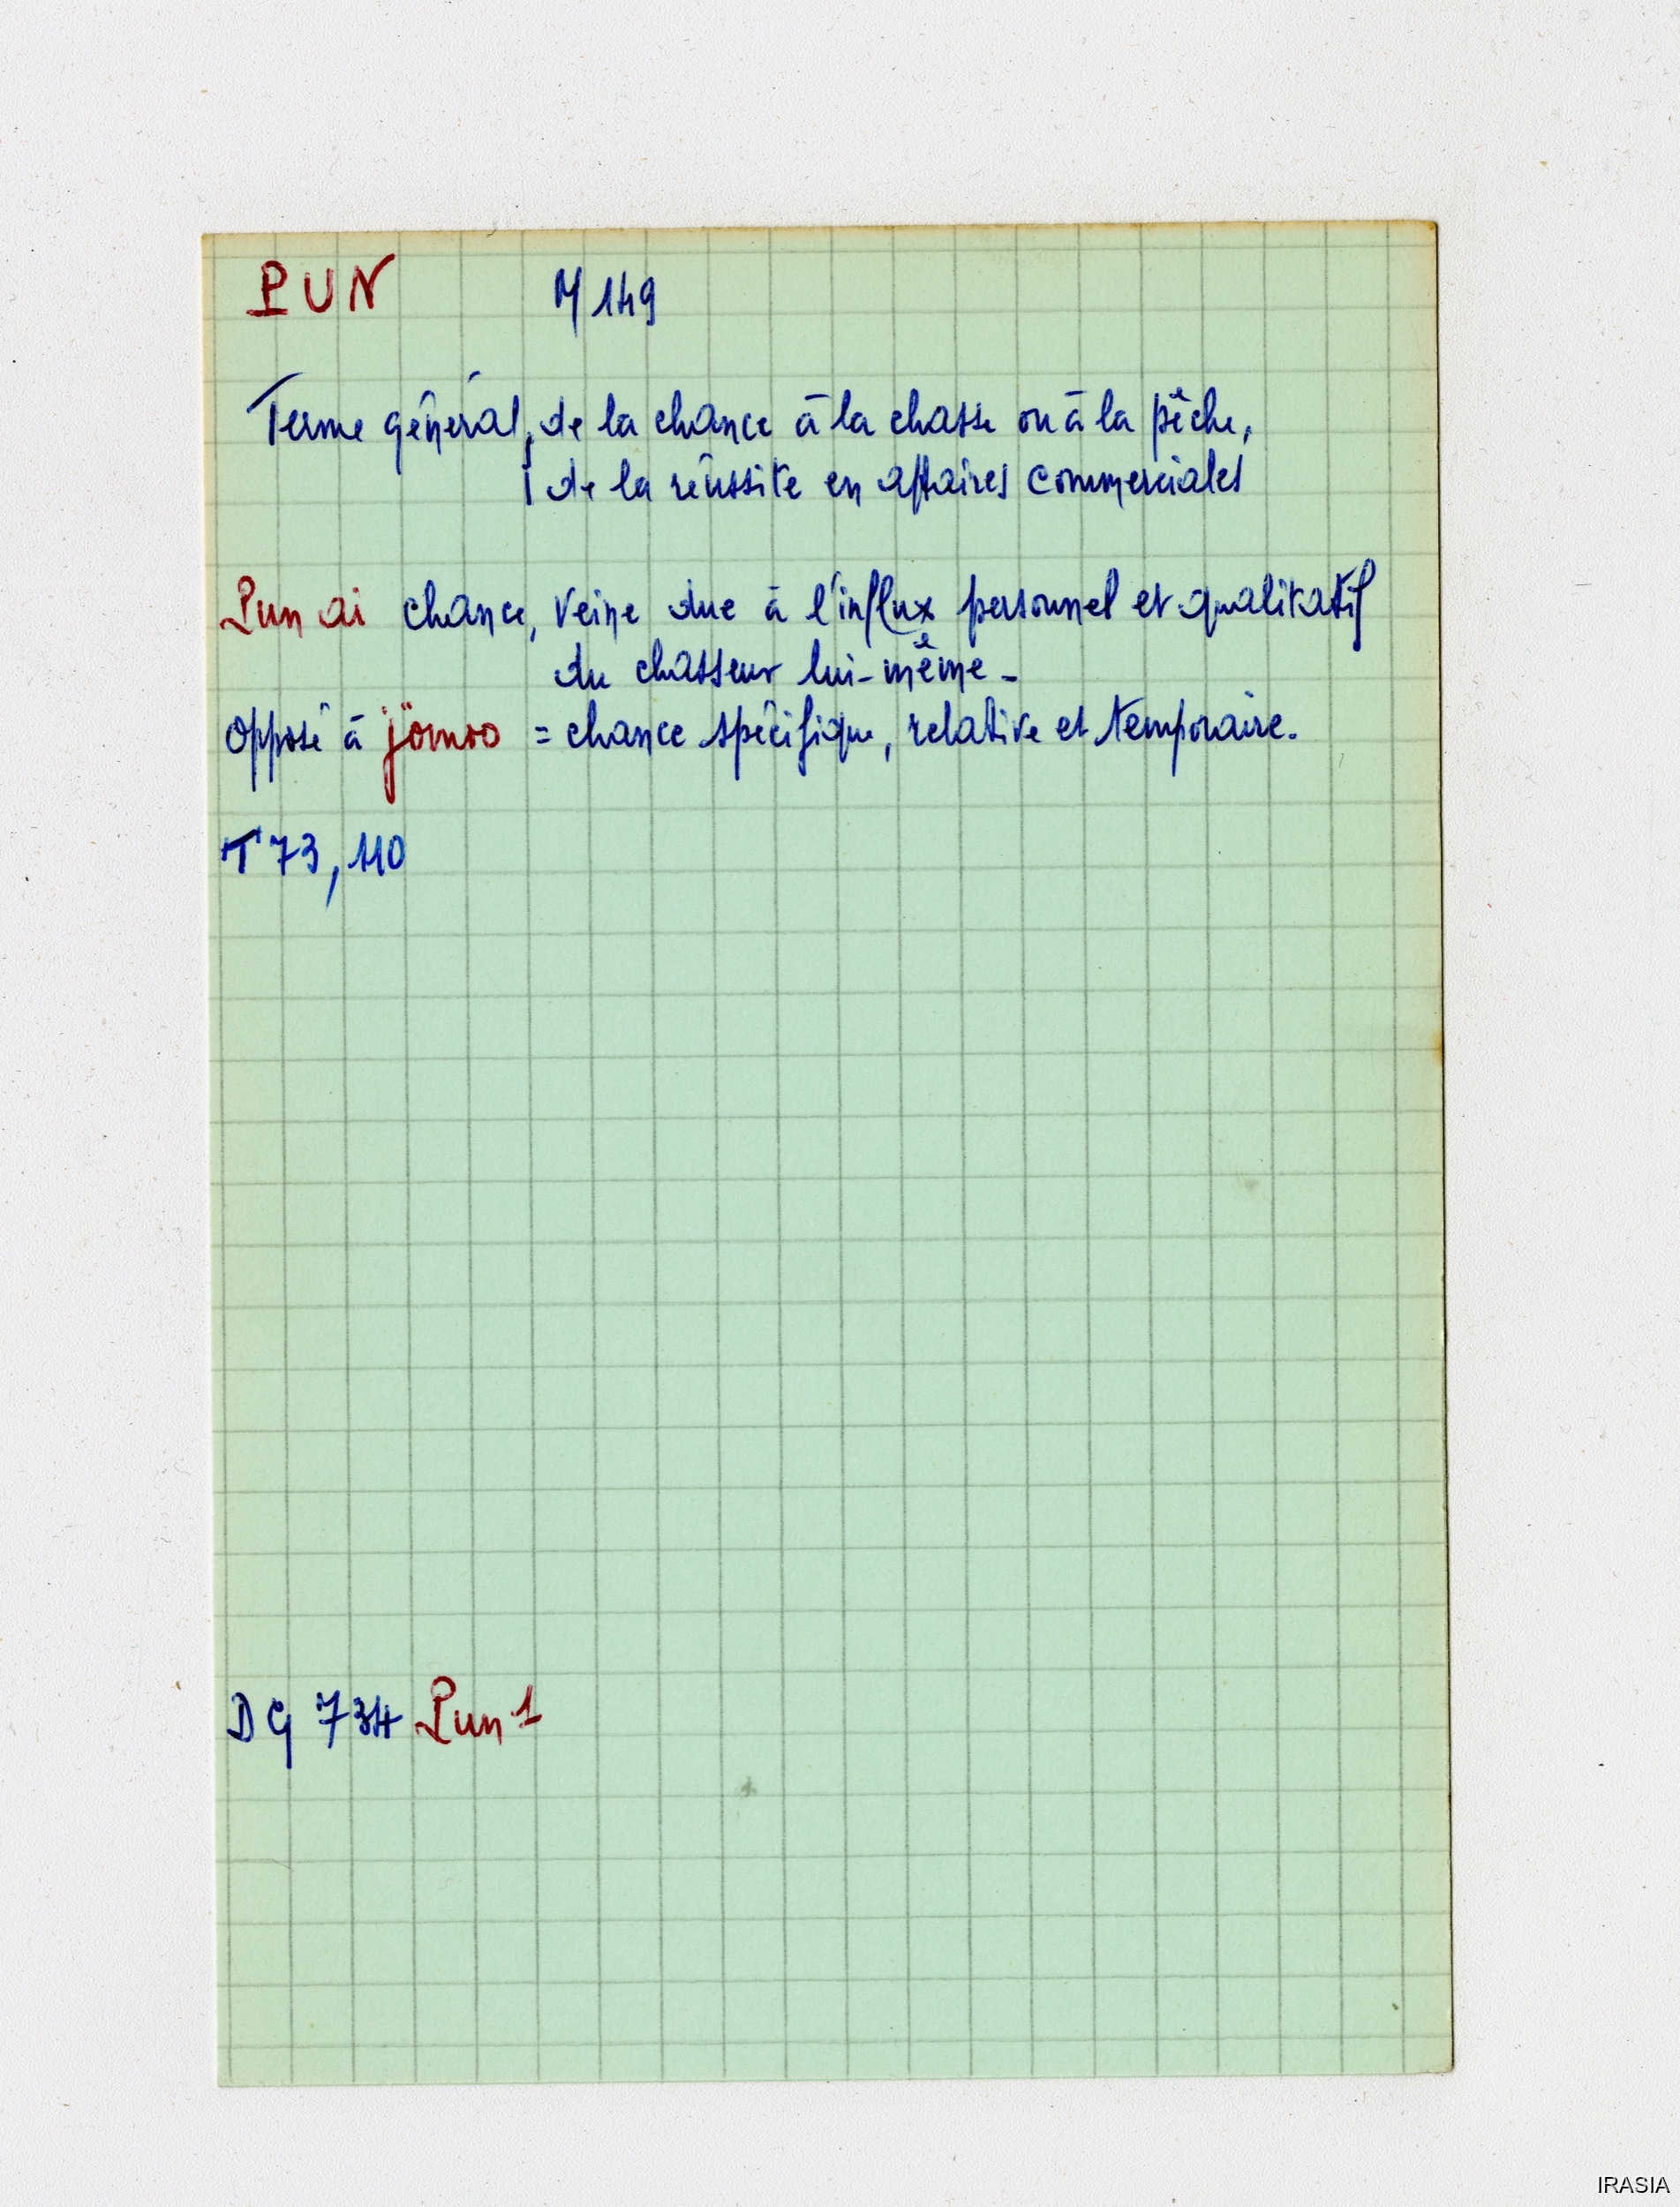 PUN M 149
Terme général, de la chance à la chasse ou à la pêche,
de la réussite en affaires commerciales
Pun ai chance, veine due à l'influx personnel et qualitatif
du chasseur lui-même -
opposé à jömoo = chance spécifique, relative et temporaire.
T 73, 110
DG 734 Pun 1
IRASIA